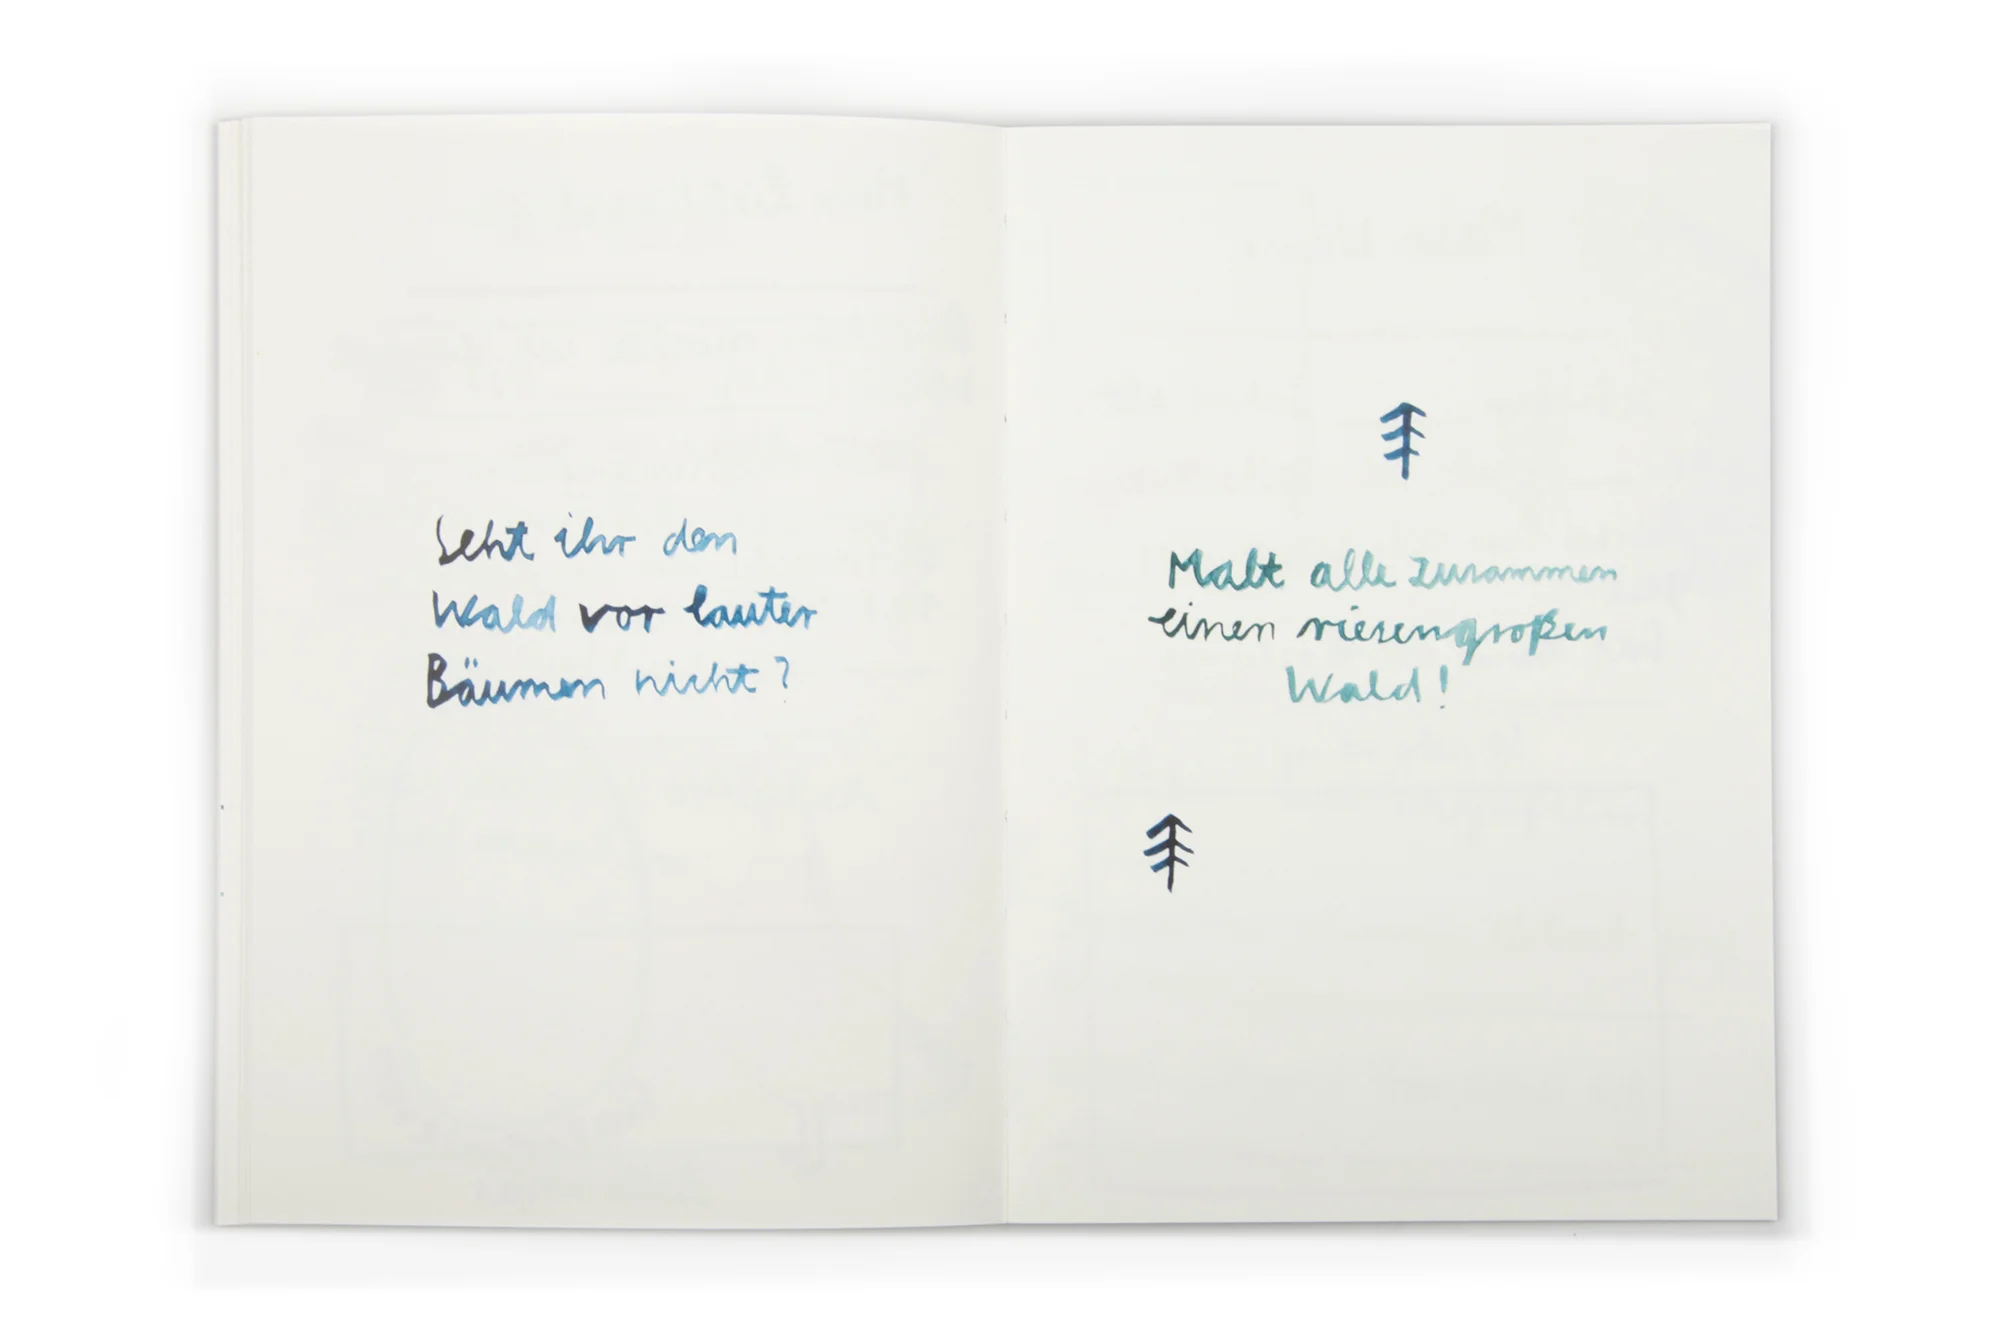 Seht ihr den
Wald vor lauter
Bäumen nicht?
Malt alle zusammen
einen riesengroßen
Wald!